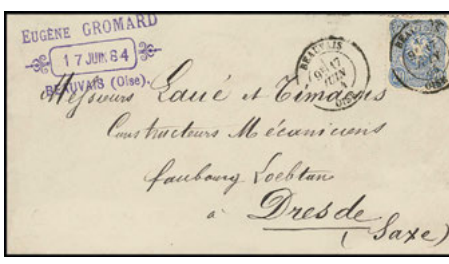 EUGÈNE GROMARD
17 JUIN 84
BEAUVAIS (Oise).
BEAUVAIS
9E 17
JUIN
OISE
BEAUVAIS
OISE
Messieurs Laué et Timaeus
Constructeurs Mécaniciens
faubourg Loebtau
à Dresde
(Saxe)